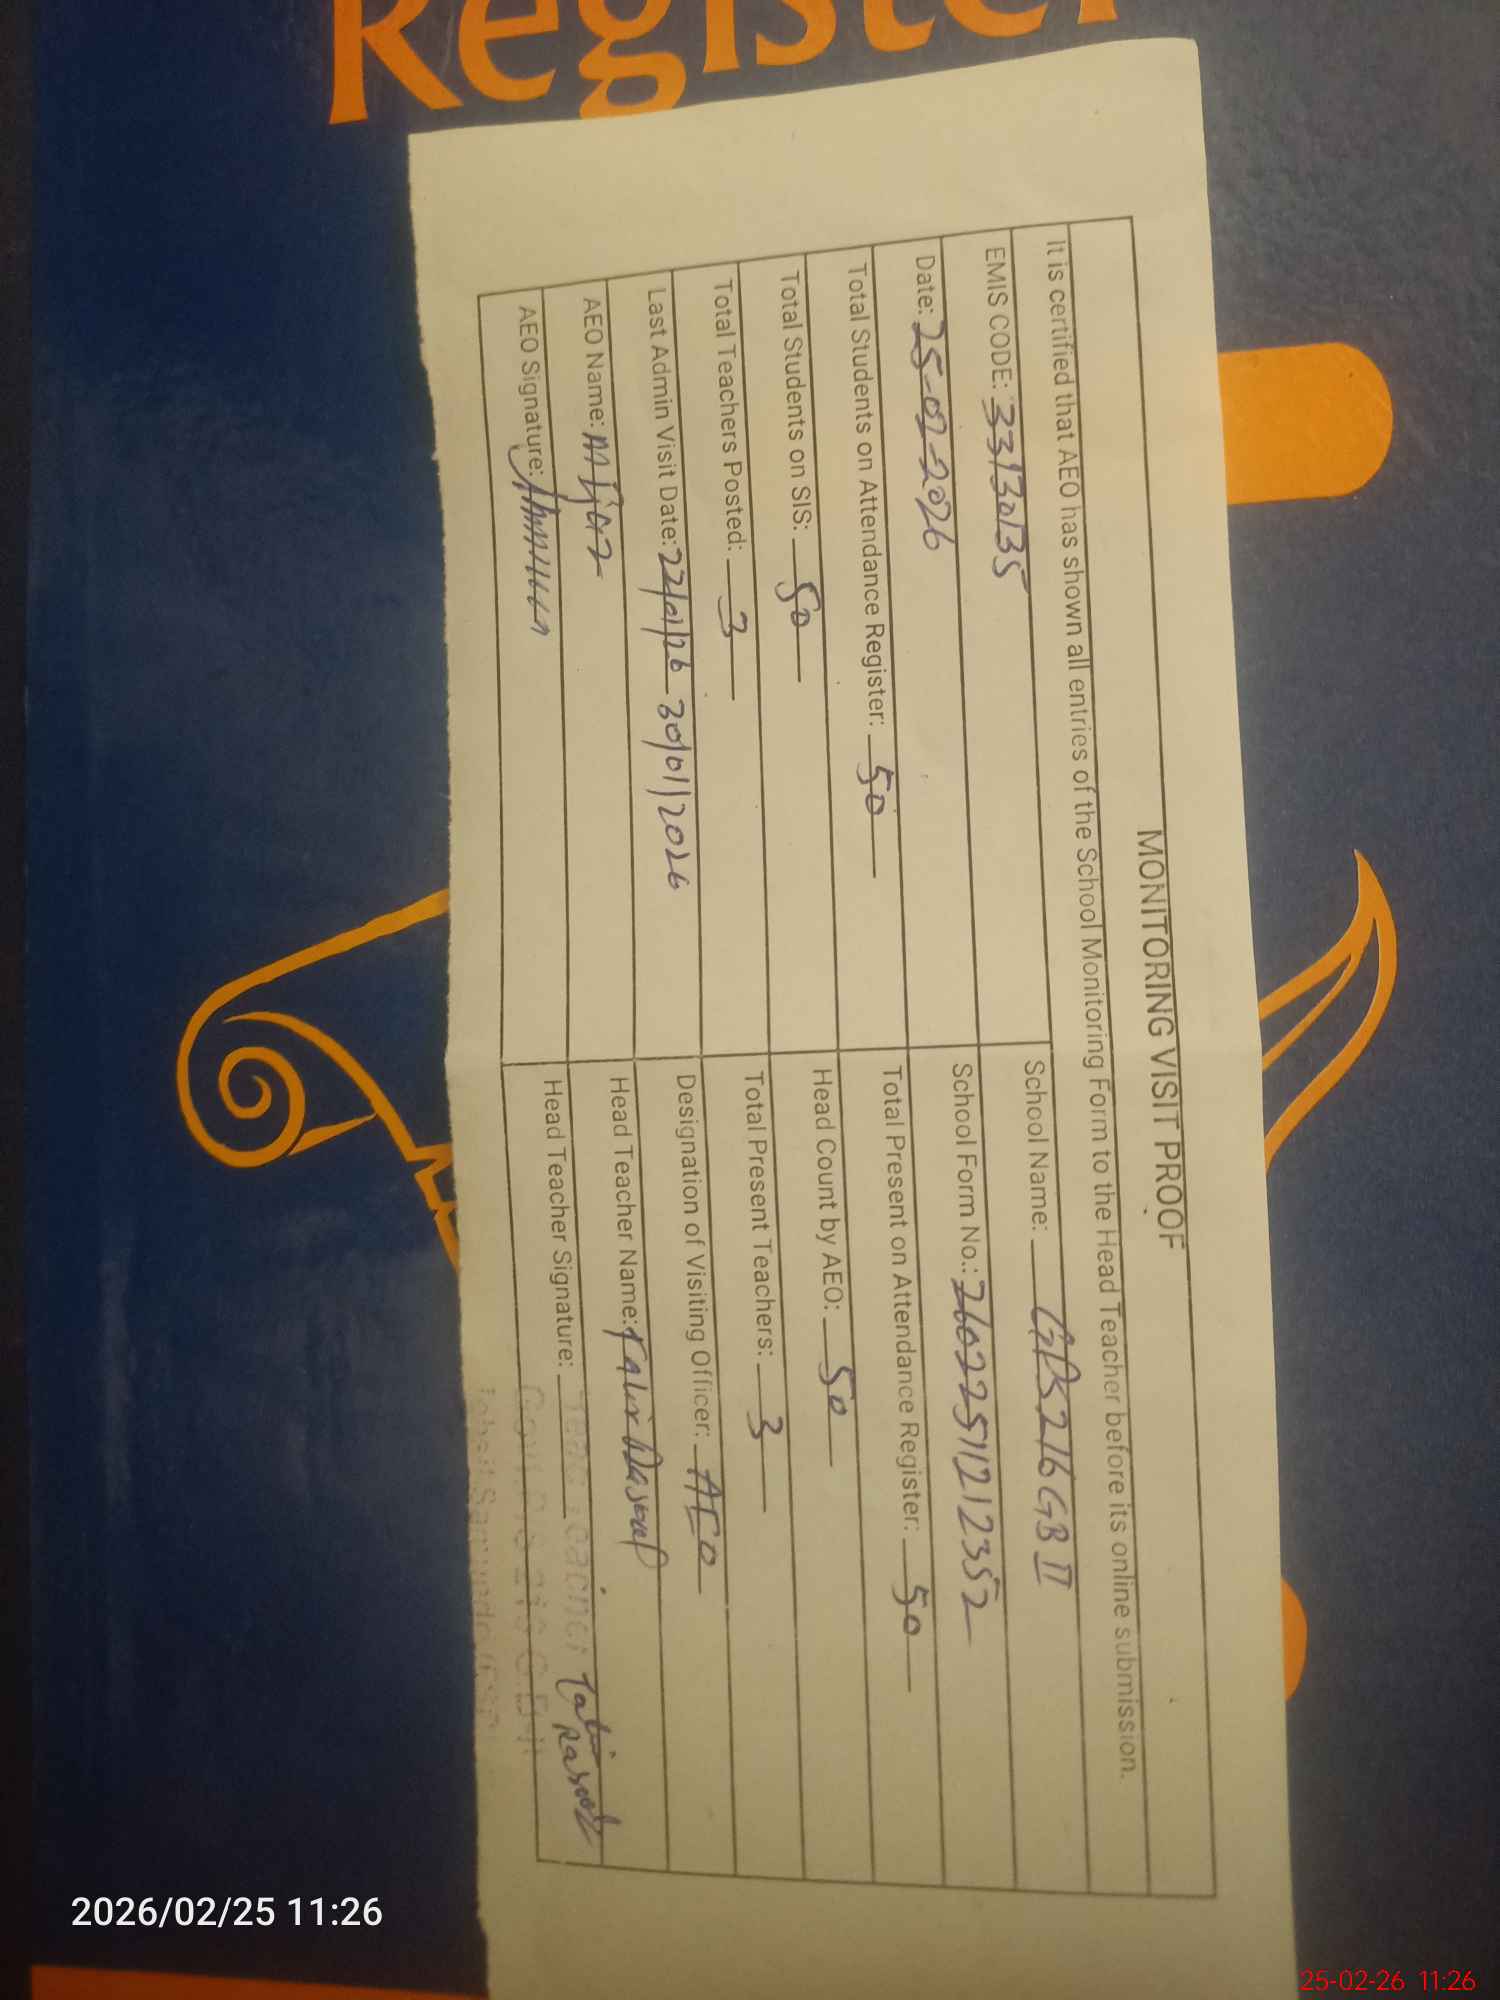 Register
MONITORING VISIT PROOF
It is certified that AEO has shown all entries of the School Monitoring Form to the Head Teacher before its online submission.
EMIS CODE: 33130135
School Name: GPS 216 GB II
Date: 25-02-2026
School Form No.: 26022511212352
Total Students on Attendance Register: 50
Total Present on Attendance Register: 50
Total Students on SIS: 50
Head Count by AEO: 50
Total Teachers Posted: 3
Total Present Teachers: 3
Last Admin Visit Date: 22/01/26 30/01/2026
Designation of Visiting Officer: AEO
AEO Name: M Ijaz
Head Teacher Name: Rasool
AEO Signature:
Head Teacher Signature: Rasool
2026/02/25 11:26
25-02-26 11:26